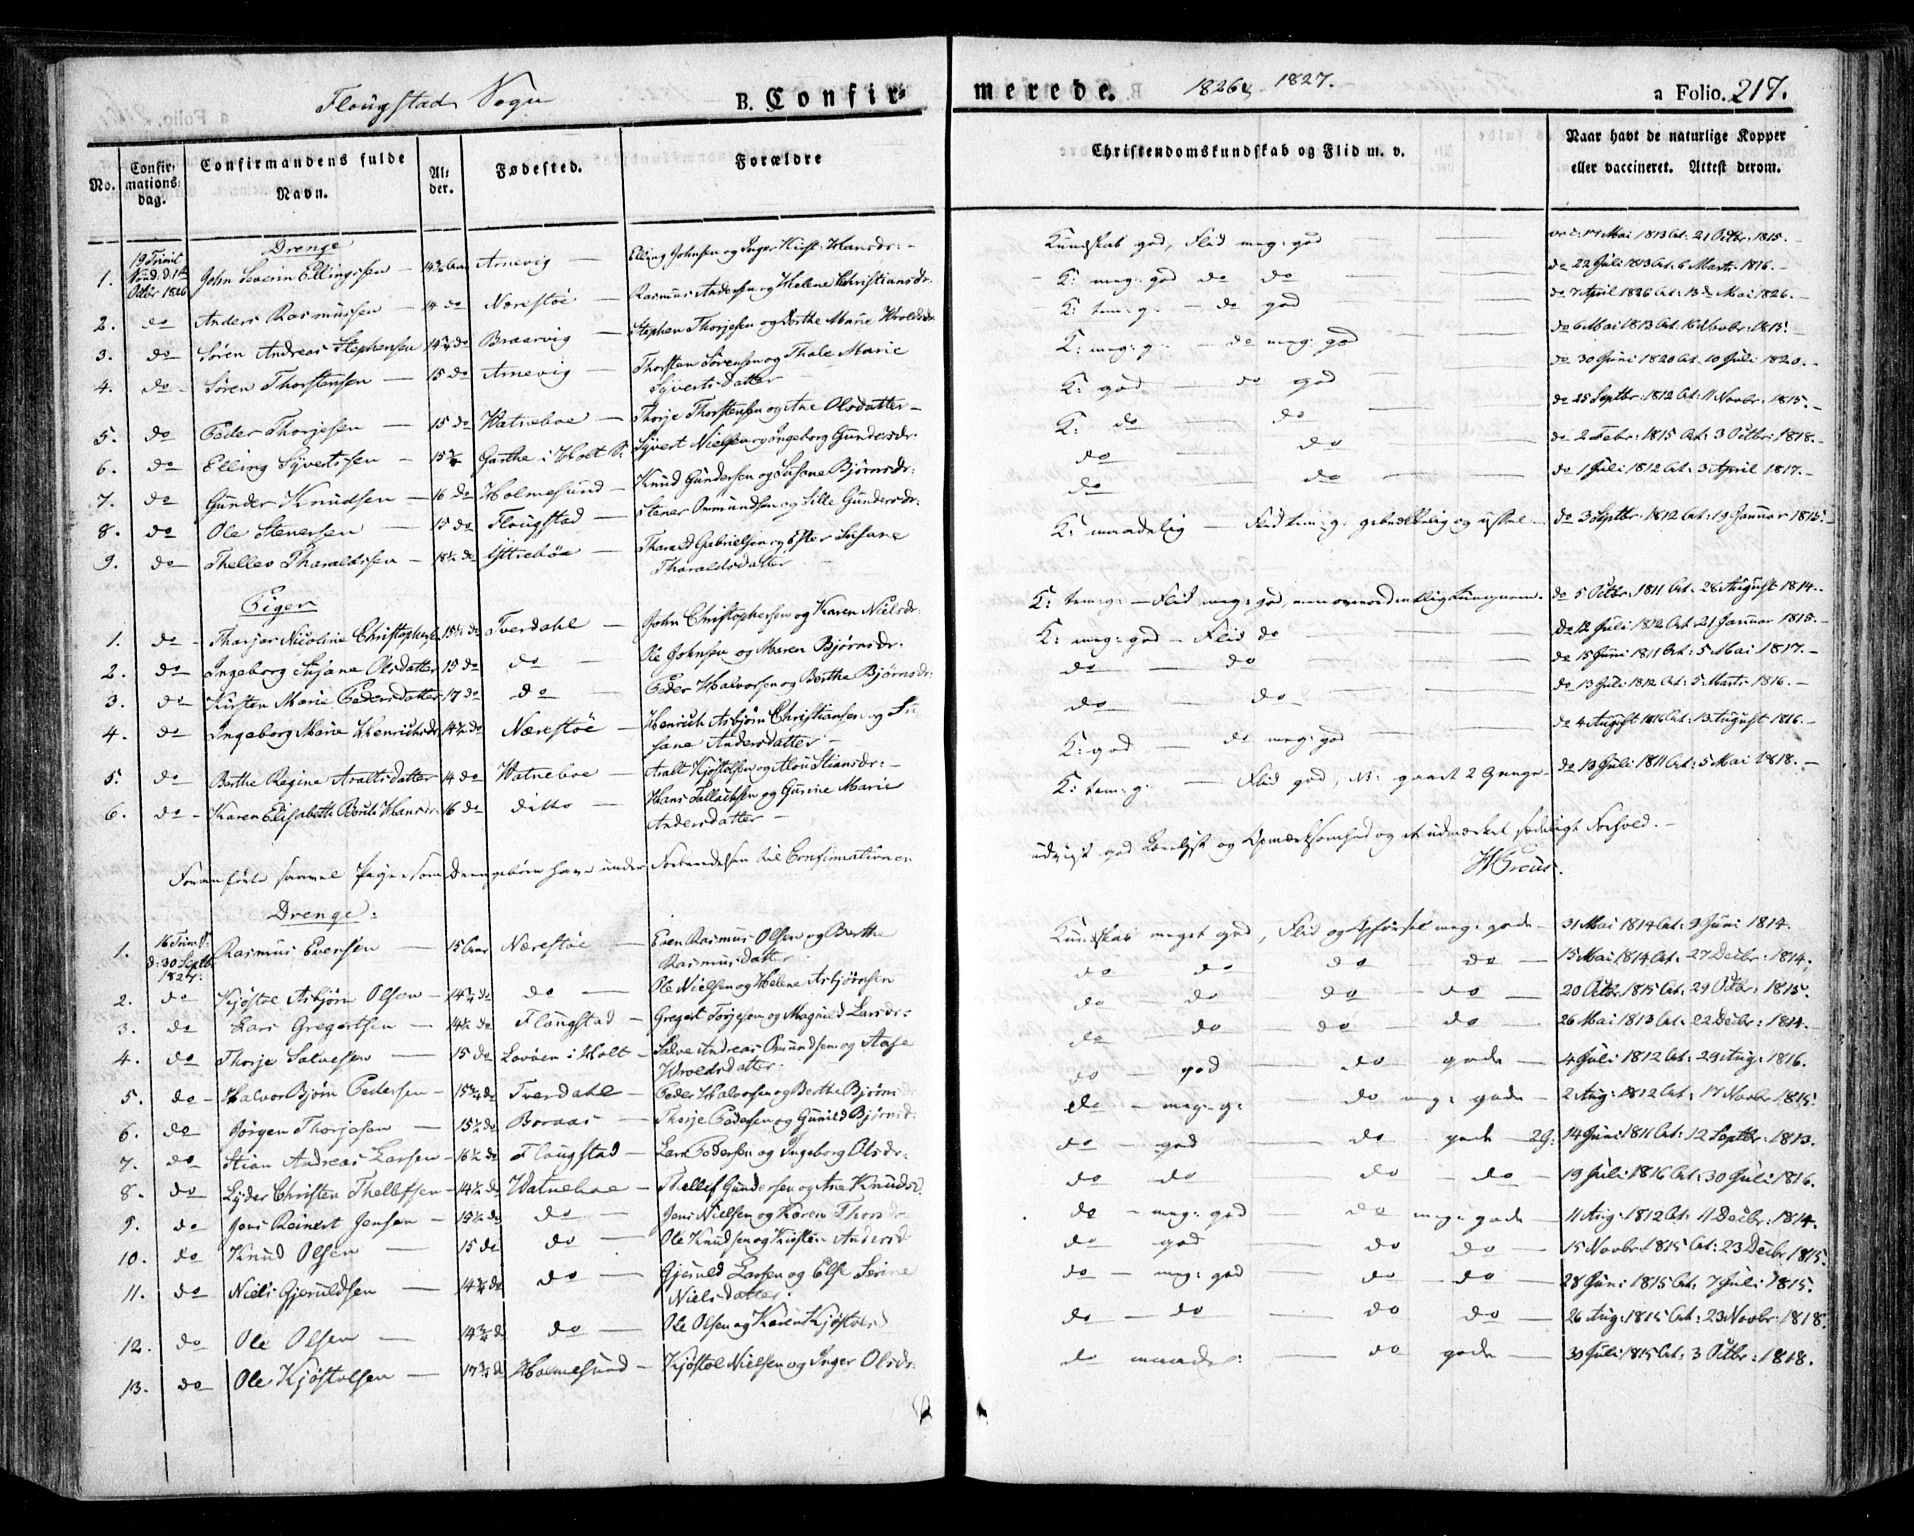 Flougstad Sogn B. Confirmerede. 1826 & 1827. a Folio. 217.
No. Confirmations-dag. Confirmandens fulde Navn. Alder. Fødested. Forældre Christendomskundskab og Flid m. v. Naar havt de naturlige Kopper eller vaccineret. Attest derom.
Drenge
1. 19 Trinit Octbr 1826 John Severin Ellingssen Arnevig Elling Johnsen og Inger Kirst: Hansdr: Kundskab god, Flid meg: god 17 Mai 1813 At: 21 Octbr: 1815.
2. do Anders Rasmussen 14 do Nærestøe Rasmus Andersen og Helene Christiansdr. K: meg: god do do do 22 Juli 1813 At: 6 Marts 1816.
3. do Søren Andreas Stephensen Braarvig Stephen Thorjesen og Dorthe Marie Wroldsdr. K: tem: g: do god do 7 April 1826 At: 13 d Mai 1826.
4. do Søren Thorstensen 15 do Arnevig Thorsten Sørensen og Thale Marie Syvertsdatter K: meg: g: do meg: god do 6 Mai 1813 At: 16 Novbr: 1815.
5. do Peder Thorjesen 15 do Watneboe Thorje Thorstensen og Ane Olsdatter K: god do god do 30 Juni 1820 At: 10 Juli 1820.
6. do Elling Syvertssen Garthe i Holt S: Syvert Nielsen og Ingeborg Gundersdr. K: do do do 25 Septbr: 1812 At: 11 Novbr: 1815.
7. do Gunder Knudsen 16 do Holmesund Knud Gundersen og Susane Bjørnsdr: do do do 2 Febr: 1815 At: 3 Octbr: 1818.
8. do Ole Stenersen 15 do Flougstad Stener Omundsen og Sille Gundersdr: do do do 1 Juli 1812 At: 3 April 1817.
9. do Thellev Tharaldssen 18½ do Yttrebøe Tharald Gabrielsen og Ester Susane Tharaldsdatter K: maadelig Flid tem: g: do 3 Septbr: 1812 At: 19 Januar 1815.
Piger
1. do Tharjer Nicoline Christophersd. 15½ do Tverdahl John Christophersen og Karen Nielsdr. K: tem: g: Flid meg: god, men overordentlig do 5 Octbr: 1811 At: 28 August 1814.
2. do Ingeborg Susane Olsdatter 15 do do Ole Johnsen og Maren Bjørnsdr. K: meg: god Flid do do 12 Juli 1812 At: 21 Januar 1815.
3. do Kirsten Marie Pedersdatter 17 do do Peder Halvorsen og Berthe Bjørnsdr: do do do 15 Juni 1811 At: 5 Mai 1817.
4. do Ingeborg Marie Henrichsdr: 14½ do Nærestøe Henrich Asbjørn Christiansen og Susane Andersdatter do do do 13 Juli 1812 At: 5 Marts 1816.
5. do Berthe Regine Araltsdatter 14 do Watneboe Aralt Kjøstolsen og Alou Stiansdr: K: god do meg: god do 4 August 1816 At: 13 August 1816.
6. do Karen Elisabeth Berult Hansdr: 16 do ditto Hans Tallachsen og Gurine Marie Andersdatter K: tem: g: Flid god, N: gaaet 2 Gange do 13 Juli 1811 At: 5 Mai 1818.
Foranførte samtl Pige- som Drengebørn have under Forberedelsen til Confirmationen udviist god Lærelyst og Opmærksomhed og et udmærket sædeligt Forhold.
Drenge:
1. 16 Trinit: d: 30 Septbr 1827: Rasmus Evensen 15 Aar Nærestøe Even Rasmus Olsen og Berthe Rasmusdatter Kundskab meget god, Flid og Opførsel meg: gode 31 Mai 1814 At: 9 Juni 1814.
2. do Kjøstol Asbjørn Olsen 14¾ do do Ole Nielsen og Helene Asbjørnsen do do do do 15 Mai 1814 At: 27 Decbr: 1814.
3. do Lars Gregertsen 14½ do Flougstad Gregert Torjesen og Magnild Larsdr: do do do do 20 Octbr 1815 At: 29 Octbr: 1815.
4. do Thorje Salvesen 15 do Lovøen i Holt Salve Andreas Omundsen og Aase Wroldsdatter do do do do 26 Mai 1813 At: 22 Decbr: 1814.
5. do Halvor Bjørn Pedersen 15¾ do Tverdahl Peder Halvorsen og Berthe Bjørns do god do gode 4 Juli 1812 At: 29 Aug: 1816.
6. do Jørgen Thorjesen 15½ do Boraas Thorje Pedersen og Gunild Bjørnsd: do meg: g: do meg: gode 2 Aug: 1812 At: 17 Novbr 1815.
7. do Stian Andreas Larsen 16½ do Flougstad Lars Pedersen og Ingeborg Olsdr: do god do gode 2 G: 14 Juni 1811 At: 12 Septbr: 1813.
8. do Lyder Christen Thellefsen 14½ do Watneboe Thellef Gundersen og Ane Knudsd. do do do do 19 Juli 1816 At: 30 Juli 1816.
9. do Jens Reinert Jensen 15½ do do Jens Nielsen og Karen Thorsdr do meg: god do meg: gode 11 Aug: 1812 At: 11 Decbr: 1814.
10. do Knud Olsen 15 do do Ole Knudsen og Kirsten Andersd do god do do 15 Novbr: 1815 At: 23 Decbr 1815.
11. do Niels Gjeruldsen 14¾ do do Gjeruld Larsen og Else Serine Nielsdatter do meg: god do do 28 Juni 1815 At: 7 Juli 1815.
12. do Ole Olsen 14¾ d do Ole Olsen og Karen Kjøstolsd do do do do 26 Aug: 1815 At: 23 Novbr: 1818.
13. do Ole Kjøstolsen 17¾ d Holmesund Kjøstol Nielsen og Inger Olsdr: do maadel: do gode 30 Juli 1815 At: 3 Octbr: 1818.